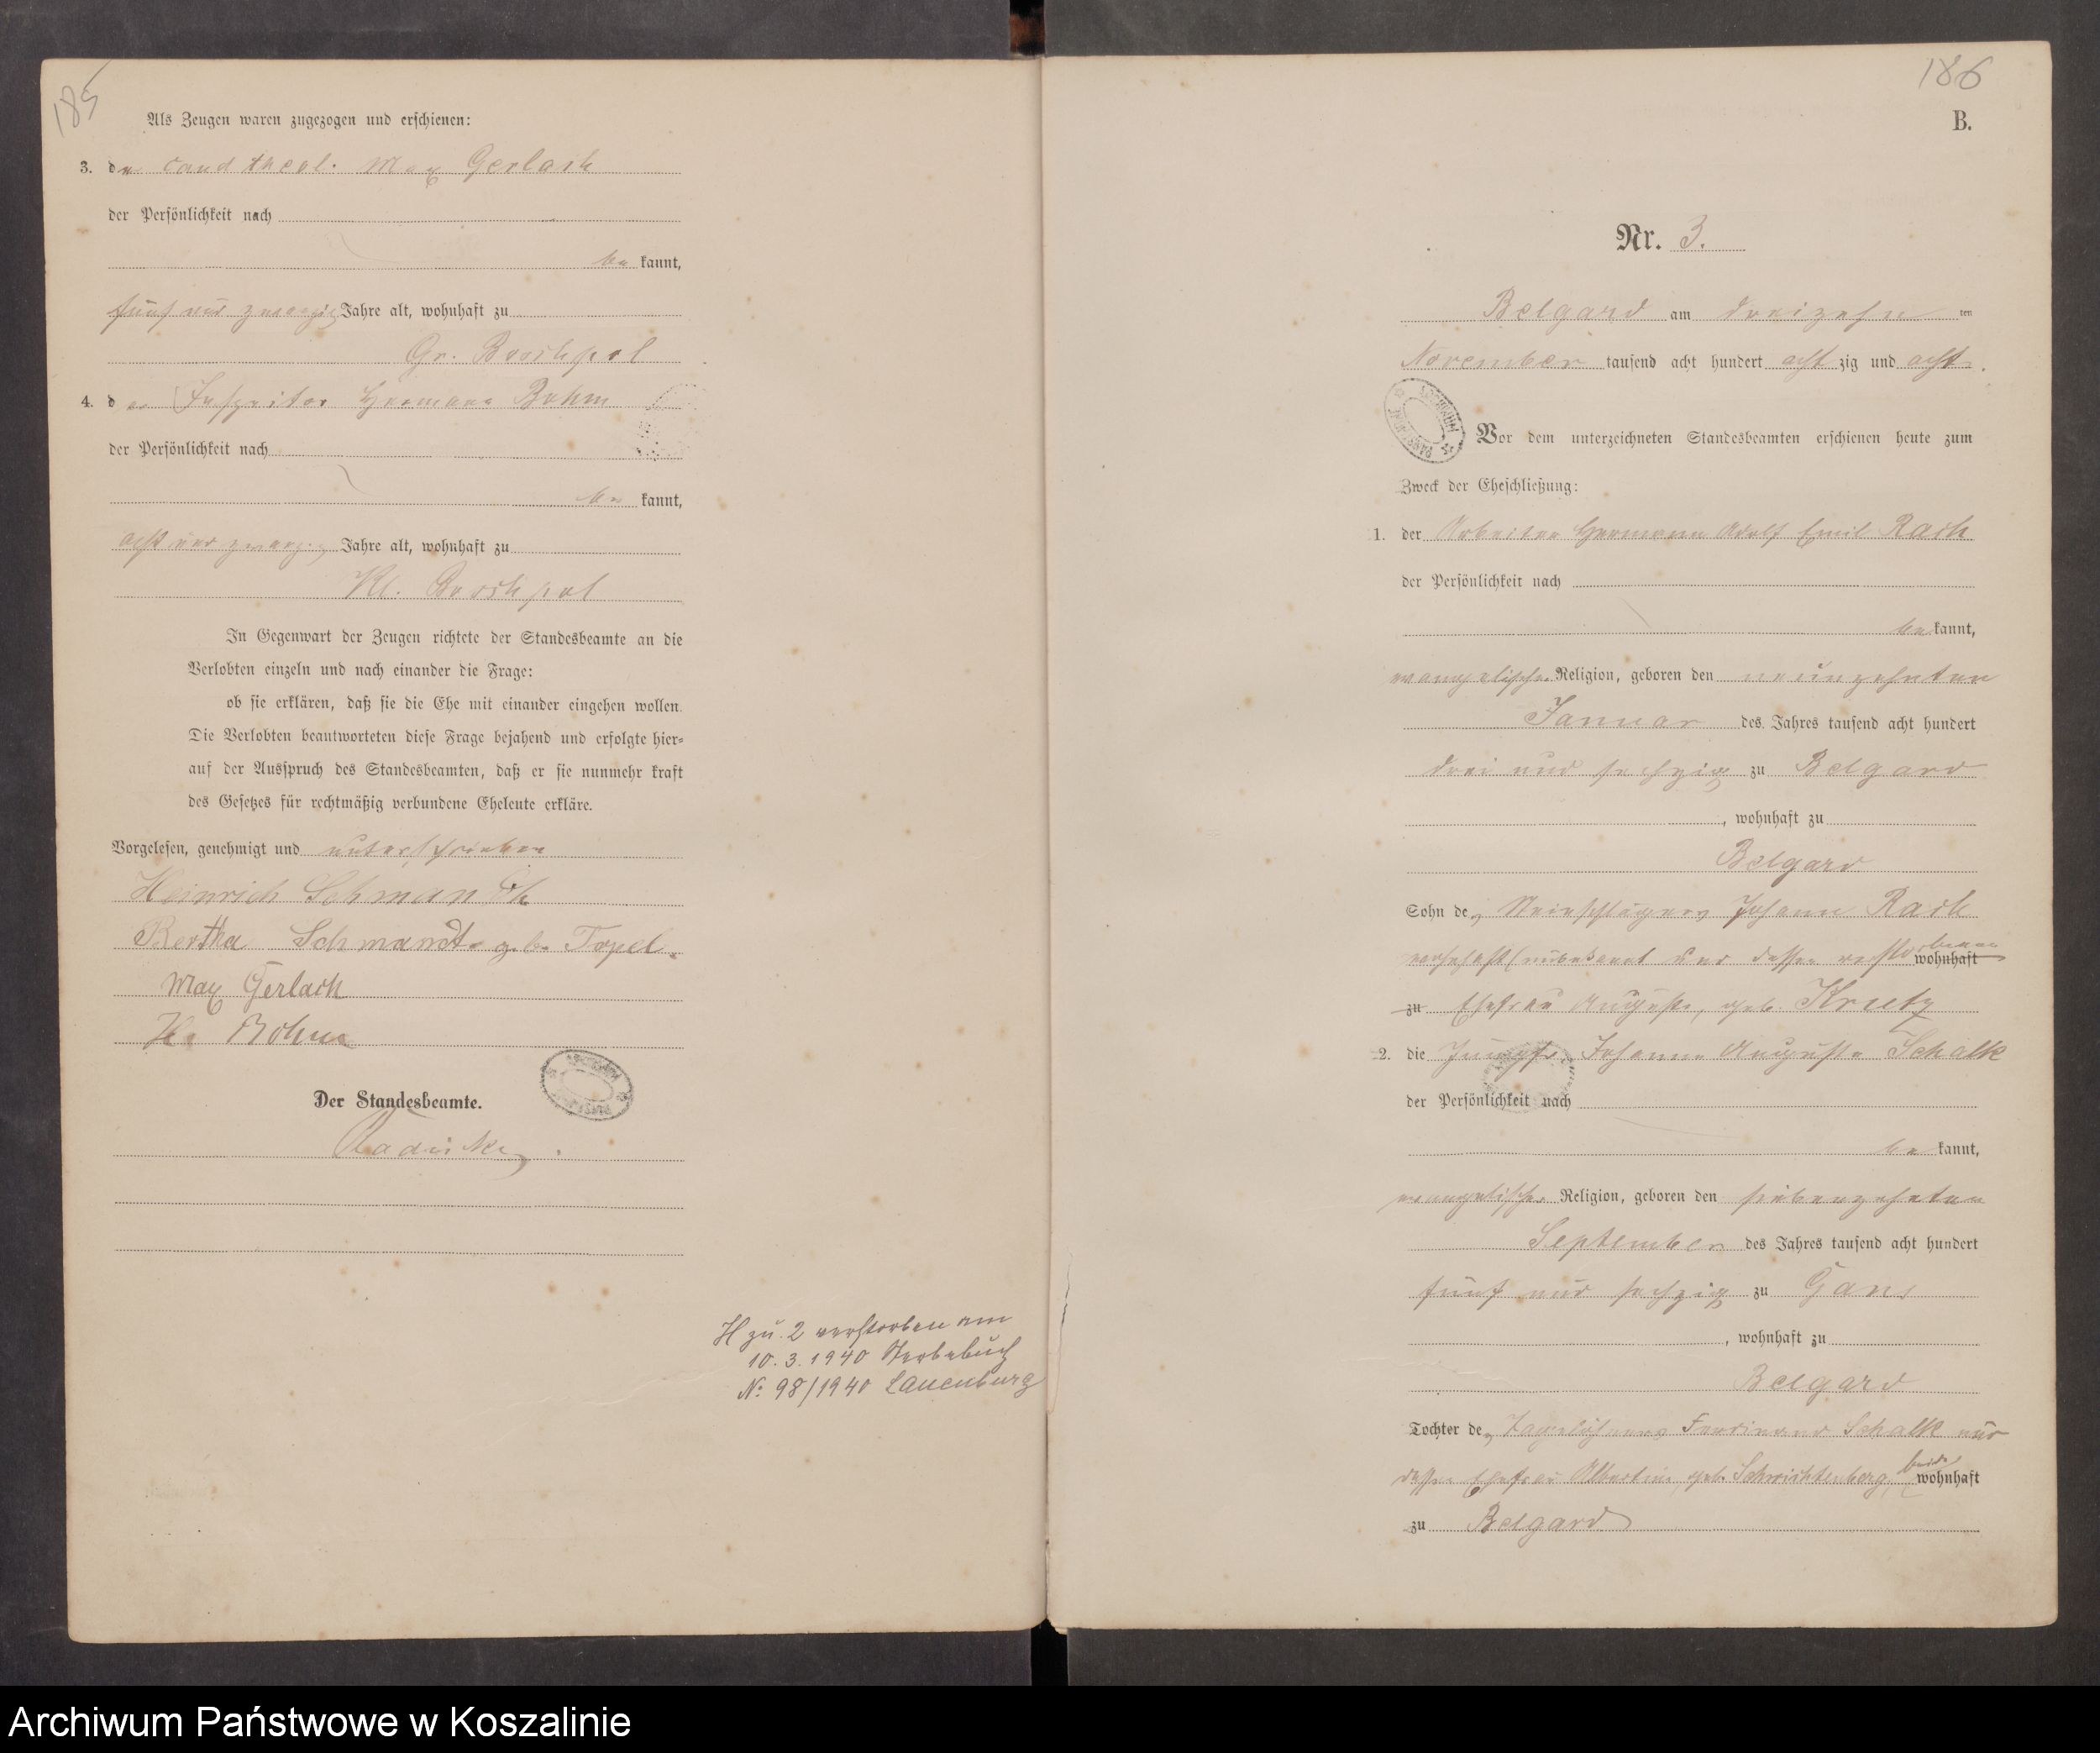 185
Als Zeugen waren zugezogen und erschienen:
3. der cand theol. Max Gerlach
der Persönlichkeit nach
be kannt,
fünf und zwanzig Jahre alt, wohnhaft zu
Gr. Boschpol
4. der Inspector Hermann Bohm
der Persönlichkeit nach
be kannt,
acht und zwanzig Jahre alt, wohnhaft zu
Kl. Boschpol
In Gegenwart der Zeugen richtete der Standesbeamte an die
Verlobten einzeln und nach einander die Frage:
ob sie erklären, daß sie die Ehe mit einander eingehen wollen.
Die Verlobten beantworteten diese Frage bejahend und erfolgte hier-
auf der Ausspruch des Standesbeamten, daß er sie nunmehr kraft
des Gesetzes für rechtmäßig verbundene Eheleute erkläre.
Vorgelesen, genehmigt und unterschrieben
Heinrich Schmandt
Bertha Schmandt geb. Topel.
Max Gerlach
H. Bohm
Der Standesbeamte.
Radüske
H zu. 2 verstorben am
10.3.1940 Sterbebuch
No: 98/1940 Lauenburg
186
B.
Nr. 3.
Belgard am dreizehn ten
November tausend acht hundert acht zig und acht.
Vor dem unterzeichneten Standesbeamten erschienen heute zum
Zweck der Eheschließung:
1. der Arbeiter Hermann Adolf Emil Rach
der Persönlichkeit nach
be kannt,
evangelischer Religion, geboren den neunzehnten
Januar des Jahres tausend acht hundert
drei und sechzig zu Belgard
, wohnhaft zu
Belgard
Sohn des Steinschlägers Johann Rach
unbekannt und dessen verstorbenen wohnhaft
zu Ehefrau Auguste, geb. Krutz
2. die Jungfr. Johanna Auguste Schalk
der Persönlichkeit nach
be kannt,
evangelischer Religion, geboren den siebenzehnten
September des Jahres tausend acht hundert
fünf und sechzig zu Gans
, wohnhaft zu
Belgard
Tochter des Tagelöhners Ferdinand Schalk und
dessen Ehefrau Albertine geb. Schwichtenberg, beide wohnhaft
zu Belgard
Archiwum Państwowe w Koszalinie